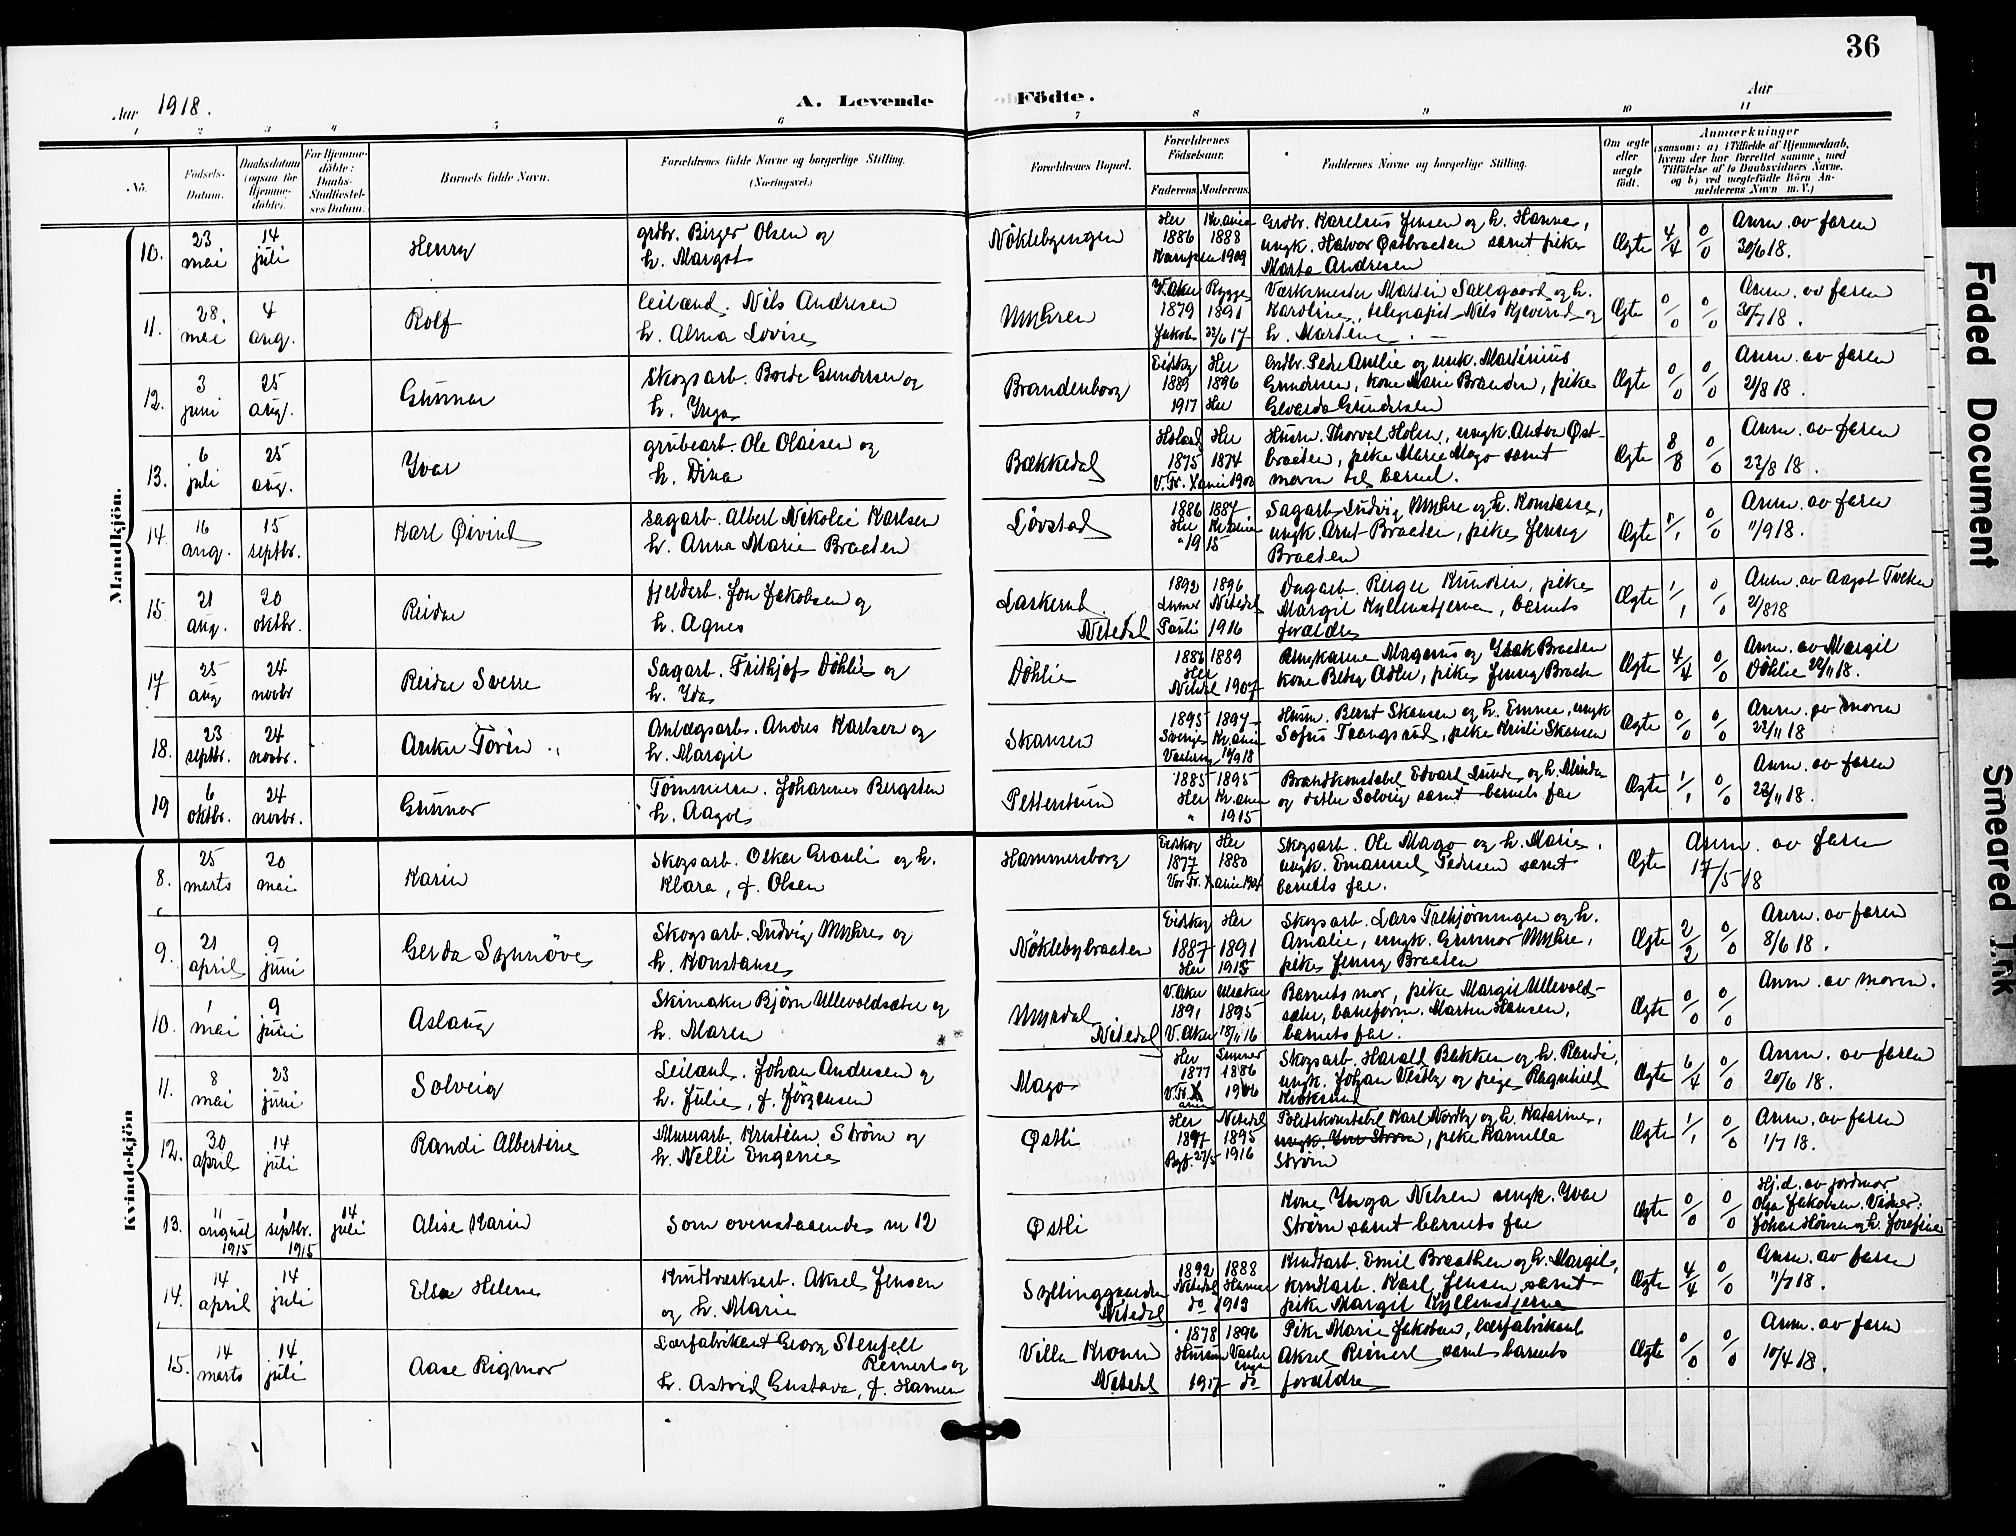 36
Aar 1918.
A. Levende
Födte.
Aar
1 2 3 4 5 6 7 8 9 10 11
No.
Födsels-Datum.
Daabsdatum (ogsaa for Hjemmedöbte).
For Hjemmedöbte: Daabs-Stadfæstelses Datum.
Barnets fulde Navn.
Forældrenes fulde Navne og borgerlige Stilling. (Næringsvei.)
Forældrenes Bopæl.
Forældrenes Födselsaar.
Faderens. Moderens.
Faddernes Navne og borgerlige Stilling.
Om ægte eller uægte födt.
Anmærkninger
(saasom: a) i Tilfælde af Hjemmedaab,
hvem der har forrettet samme, med
Tilföielse af to Daabsvidners Navne,
og b) ved uægtefödte Börn Anmelderens Navn m. V.)
Mandkjön.
10. 23 mai 14 juli Henry
grdbr. Birger Olsen og
h. Margot
Nöklebyengen
Her 1886 Kr.ania 1888
Kampen 1909
Grdbr. Karelius Jensen og h. Hanna,
ungk. Halvor Østbraeten samt pike
Marta Andresen
Ægte 4/4 0/0
Anm. av faren
30/6 18.
11. 28 mai 4 aug. Rolf
leilænd. Nils Andresen
h. Alma Lovise
Myhren
V. Aker 1879 Rygge 1891
Jakob 22/6 17
Værksmester Martin Saxegaard og h.
Karoline, telegrafist Nils Kjeverud og
h. Martine
Ægte 0/0 0/0
Anm. av faren
30/7 18.
12. 3 juni 25 aug. Gunnar
Skogsarb. Brede Gundersen og
h. Inga
Brandenborg
Eidskog 1889 Her 1896
1917 Her
Grdbr. Peder Amlie og ungk. Martinius
Gundersen, kone Marie Braaten, pike
Gevarda Gundersen
Ægte 0/0 0/0
Anm. av faren
21/8 18.
13. 6 juli 25 aug. Yvar
grubearb. Ole Olaisen og
h. Dina
Bækkedal
Holand 1875 Her 1874
V. Fr. Xania 1900
Husm. Thorval Holm, ungk. Anton Øst-
braeten, pike Marie Mago samt
moren til barnet.
Ægte 8/8 0/0
Anm. av faren
22/8 18.
14. 16 aug. 15 septbr. Karl Øivind
Sagarb. Albert Nikolai Karlsen
h. Anna Marie Braeten
Lövstad
1886 1887
Her Kr.ania
" 1915
Sagarb. Ludvig Myhre og h. Konstanse,
ungk. Arnt Braeten, pike Jenny
Braeten
Ægte 1/1 0/0
Anm. av faren
11/9 18.
15. 21 aug. 20 oktbr. Reidar
Jon Jakobsen og
h. Agnes
Laskerud
Nitedal
1892 1896
Lunner Nitedal
Pauli 1916
Dagarb. Birger Knudsen, pike
Margit Kyllenstjerna, barnets
foraldre
Ægte 1/1 0/0
Anm. av Aagot Tveten
21/8 18
17 25 aug 24 novbr Reidar Sverre
Sagarb. Frithjof Döhlie og
h. Ida
Döhlie
1886 1889
Her
Nitedal 1907
Ungkarene Magnus og Isak Braeten
kone Betsy Adler, pike Jenny Braeten
Ægte 4/4 0/0
Anm. av Margit
Döhlie 22/11 18.
18. 23 septbr. 24 novbr. Anker Torin
Anlægsarb. Andres Karlsen og
h. Margit
Skansen
1895 1897
Sverige Kr.ania
14/9 18
Husm. Bernt Skansen og h. Emma, ungk
Sofus Trengsrud, pike Kristi Skansen
Ægte 0/0 0/0
Anm. av moren
22/11 18
19 6 oktbr. 24 novbr. Gunnar
Tömmerm. Johannes Bergsten
h. Aagot
Petterstuen
1885 1895
Her Kr.ania
" 1915
Brandkonstabel Edvart Lunde og h. Minda
og datter Solveig samt barnets far
Ægte 1/1 0/0
Anm. av faren
23/11 18.
Kvindekjön
8. 25 marts 20 mai Karin
Skogsarb. Oskar Granli og h.
Klara, f. Olsen
Hammersborg
Eidskog 1877 Her 1880
Vor Fr. Xania 1904
Skogsarb. Ole Mago og h. Marie,
ungk. Emanuel Pedersen samt
barnets far.
Ægte
Anm. av faren
17/5 18
9. 21 april 9 juni Gerda Synnöve
Skogsarb. Ludvig Myhre og
h. Konstanse
Nöklebybraaten
Eidskog 1887 Her 1891
Her 1915
Skogsarb. Lars Trehjörningen og h.
Amalie, ungk. Gunnar Myhre,
pike Jenny Braeten
Ægte 2/2 0/0
Anm. av faren
8/6 18.
10. 1 mai 9 juni Aslaug
Skimaker Björn Ullevoldsæter og
h. Maren
Nitedal
V. Aker 1891 Ulsaker 1895
V. Aker 18/11 16
Barnets mor, pike Margit Ullevold-
sæter, baneform. Marten Hansen,
barnets far.
Ægte 0/0 0/0
Anm. av moren.
11. 8 mai 23 juni Solveig
Leilænd. Johan Andresen og
h. Julie, f. Jörgensen
Mago
Her 1877 Lunner 1886
V. Fr. X ania 1906
Skogsarb. Harald Bakken og h. Randi,
ungk. Johan Vestby og pige Ragnhild
Kroksrud
Ægte 6/4 0/0
Anm. av faren
20/6 18.
12. 30 april 14 juli Randi Albertine
Murerarb. Kristian Ström og
h. Nelli Eugenie
Østli
Her 1897 Nitedal 1895
Bygf. 27/5 1916
Politikonstabel Karl Nordby og h. Katarine,
ungk. Yvar Ström, pike Kamilla
Ström
Ægte 1/1 0/0
Anm. av faren
1/7 18.
13. 11 august 1915 1 septbr. 1915 14 juli Alise Karin
Som ovenstaaende nr 12
Østli
Kone Ynga Nilsen ungk. Yvar
Ström samt barnets far
Ægte 0/0 0/0
Hj.d. av jordmor
Olga Jakobsen. Vidner:
Johan Hönsen og h. Josefine
14. 14 april 14 juli Elsa Helene
Krudtværksarb. Aksel Jensen
og h. Marie
Syllinggaarden
Nitedal
1892 1888
Nitedal Hamar
do 1913
Krudtarb. Emil Braathen og h. Margit,
krudtarb. Karl Jensen samt
pike Margit Kyllenstjerna
Ægte 4/4 0/0
Anm. av faren
11/7 18.
15. 14 marts 14 juli Aase Rigmor
Lærfabrikant Georg Stenfelt
Reinert og
h. Astrid Gustava, f. Hansen
Villa Kroun
Nitedal
1878 1896
Hurum
1917 do
Pike Marie Jakobsen, lærfabrikant
Aksel Reinert samt barnets
foraldre
Ægte 0/0 0/0
Anm. av faren
10/4 18.
Faded Document
Smeared Ink